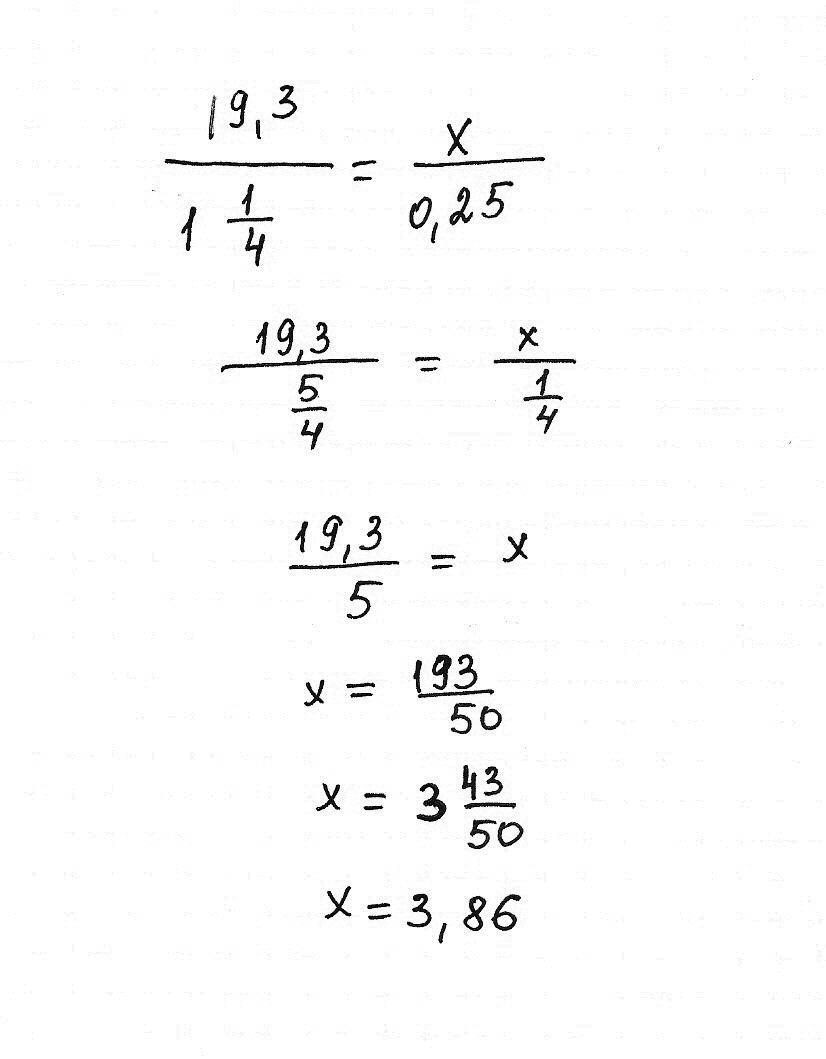 19,3 / 1 1/4 = x / 0,25
19,3 / 5/4 = x / 1/4
19,3 / 5 = x
x = 193/50
x = 3 43/50
x = 3,86